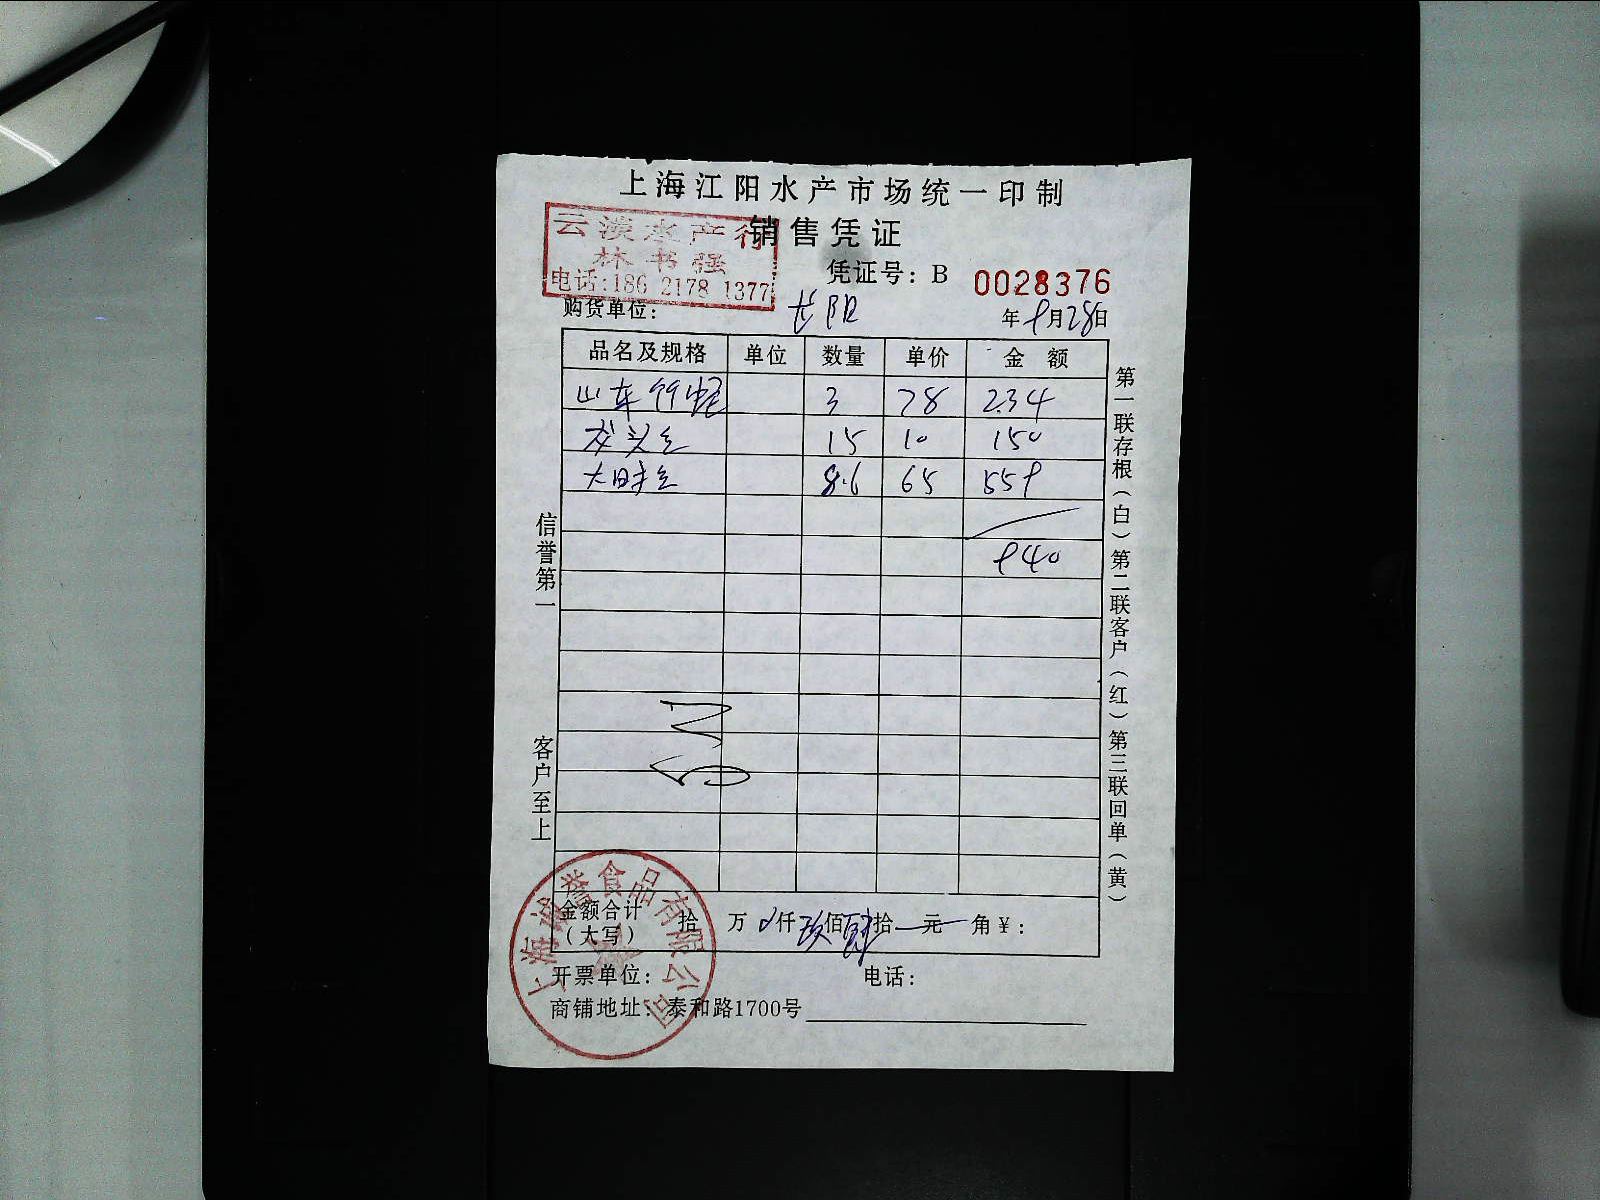 上海江阳水产市场统一印制
销售凭证
云淡水产行
林书强
电话:186 2178 1377
凭证号: B 0028376
购货单位: 长阳
年 9月28日
品名及规格 单位 数量 单价 金额
山东 3 78 234
龙头鱼 15 10 150
大明鱼 8.6 65 559
940
信誉第一
客户至上
第一联存根(白)第二联客户(红)第三联回单(黄)
金额合计(大写) 拾 万 仟 玖佰 肆拾 元 角 ¥:
开票单位: 电话:
商铺地址: 泰和路1700号
上海诚誉食品有限公司